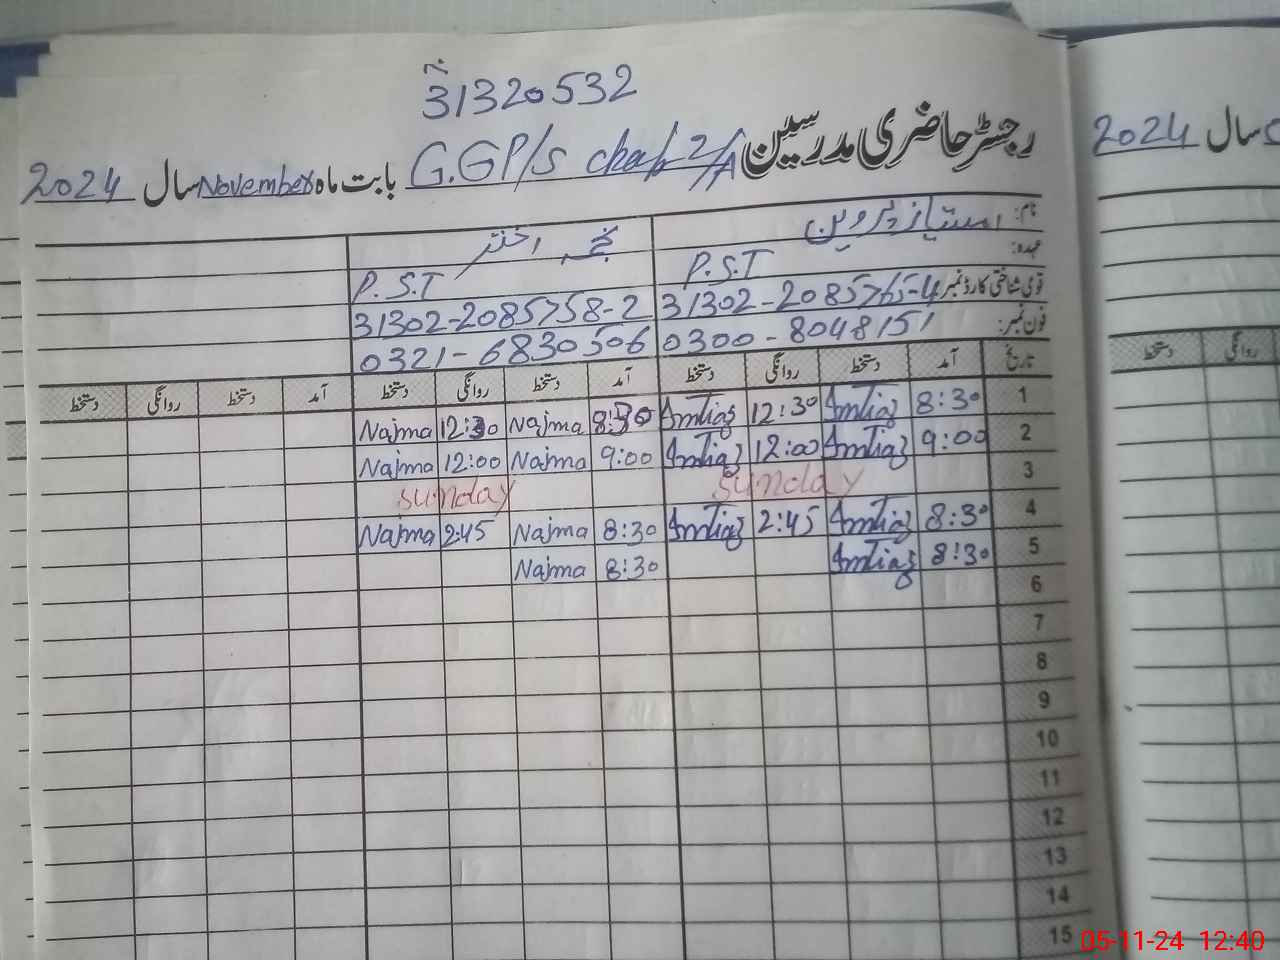 31320532
رجسٹر حاضری مدرسین G.GP/S chak 2/A بابت ماہ November سال 2024
نام: امتیاز پروین نجمہ اختر
عہدہ: P.S.T P.S.T
قومی شناختی کارڈ نمبر 31302-2085765-4 31302-2085758-2
فون نمبر: 0300-8048151 0321-6830506
تاریخ آمد دستخط روانگی دستخط آمد دستخط روانگی دستخط آمد دستخط روانگی دستخط
1 8:30 Imtiaz 12:30 Imtiaz 8:30 Najma 12:30 Najma
2 9:00 Imtiaz 12:00 Imtiaz 9:00 Najma 12:00 Najma
3 Sunday Sunday
4 8:30 Imtiaz 2:45 Imtiaz 8:30 Najma 2:45 Najma
5 8:30 Imtiaz 8:30 Najma
6
7
8
9
10
11
12
13
14
15
سال 2024
روانگی دستخط
05-11-24 12:40